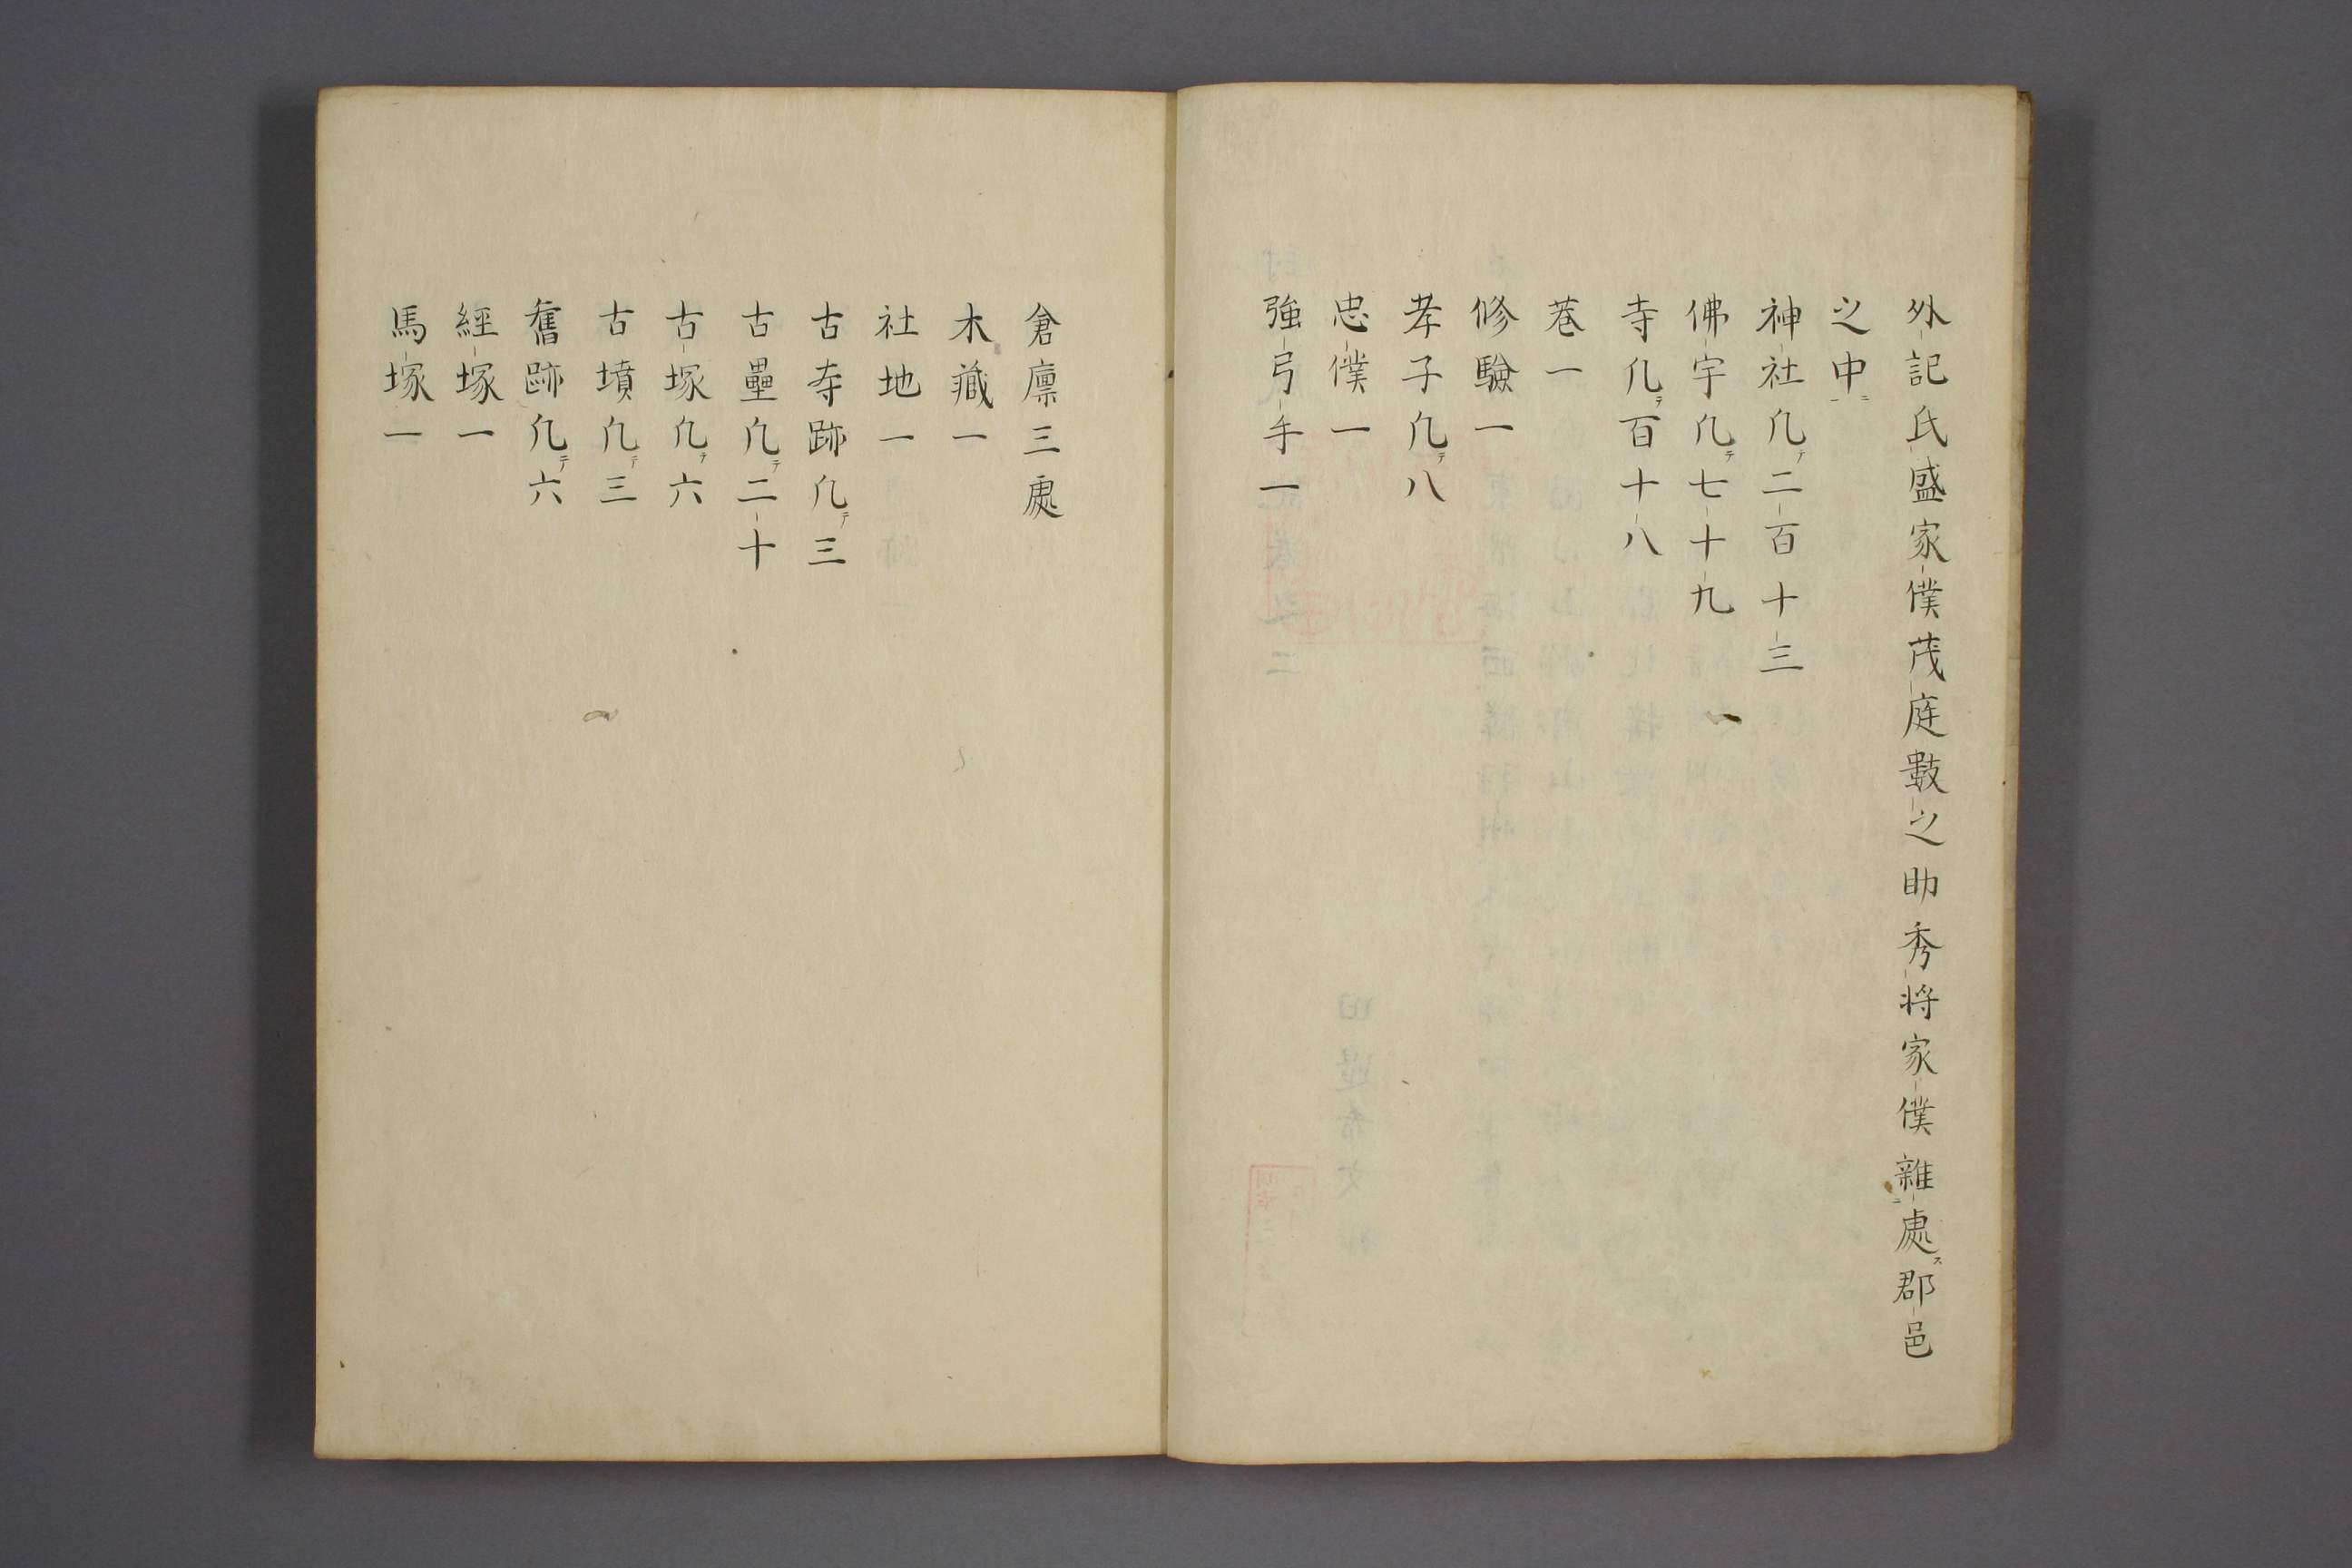 外記氏盛家僕茂庭數之助秀将家僕雜處ス郡邑
之中ニ
神社凡テ二百十三
佛宇凡テ七十九
寺凡テ百十八
菴一
修驗一
孝子凡テ八
忠僕一
強弓手一
倉廩三處
木藏一
社地一
古寺跡凡テ三
古壘凡テ二十
古塚凡テ六
古墳凡テ三
舊跡凡テ六
經塚一
馬塚一